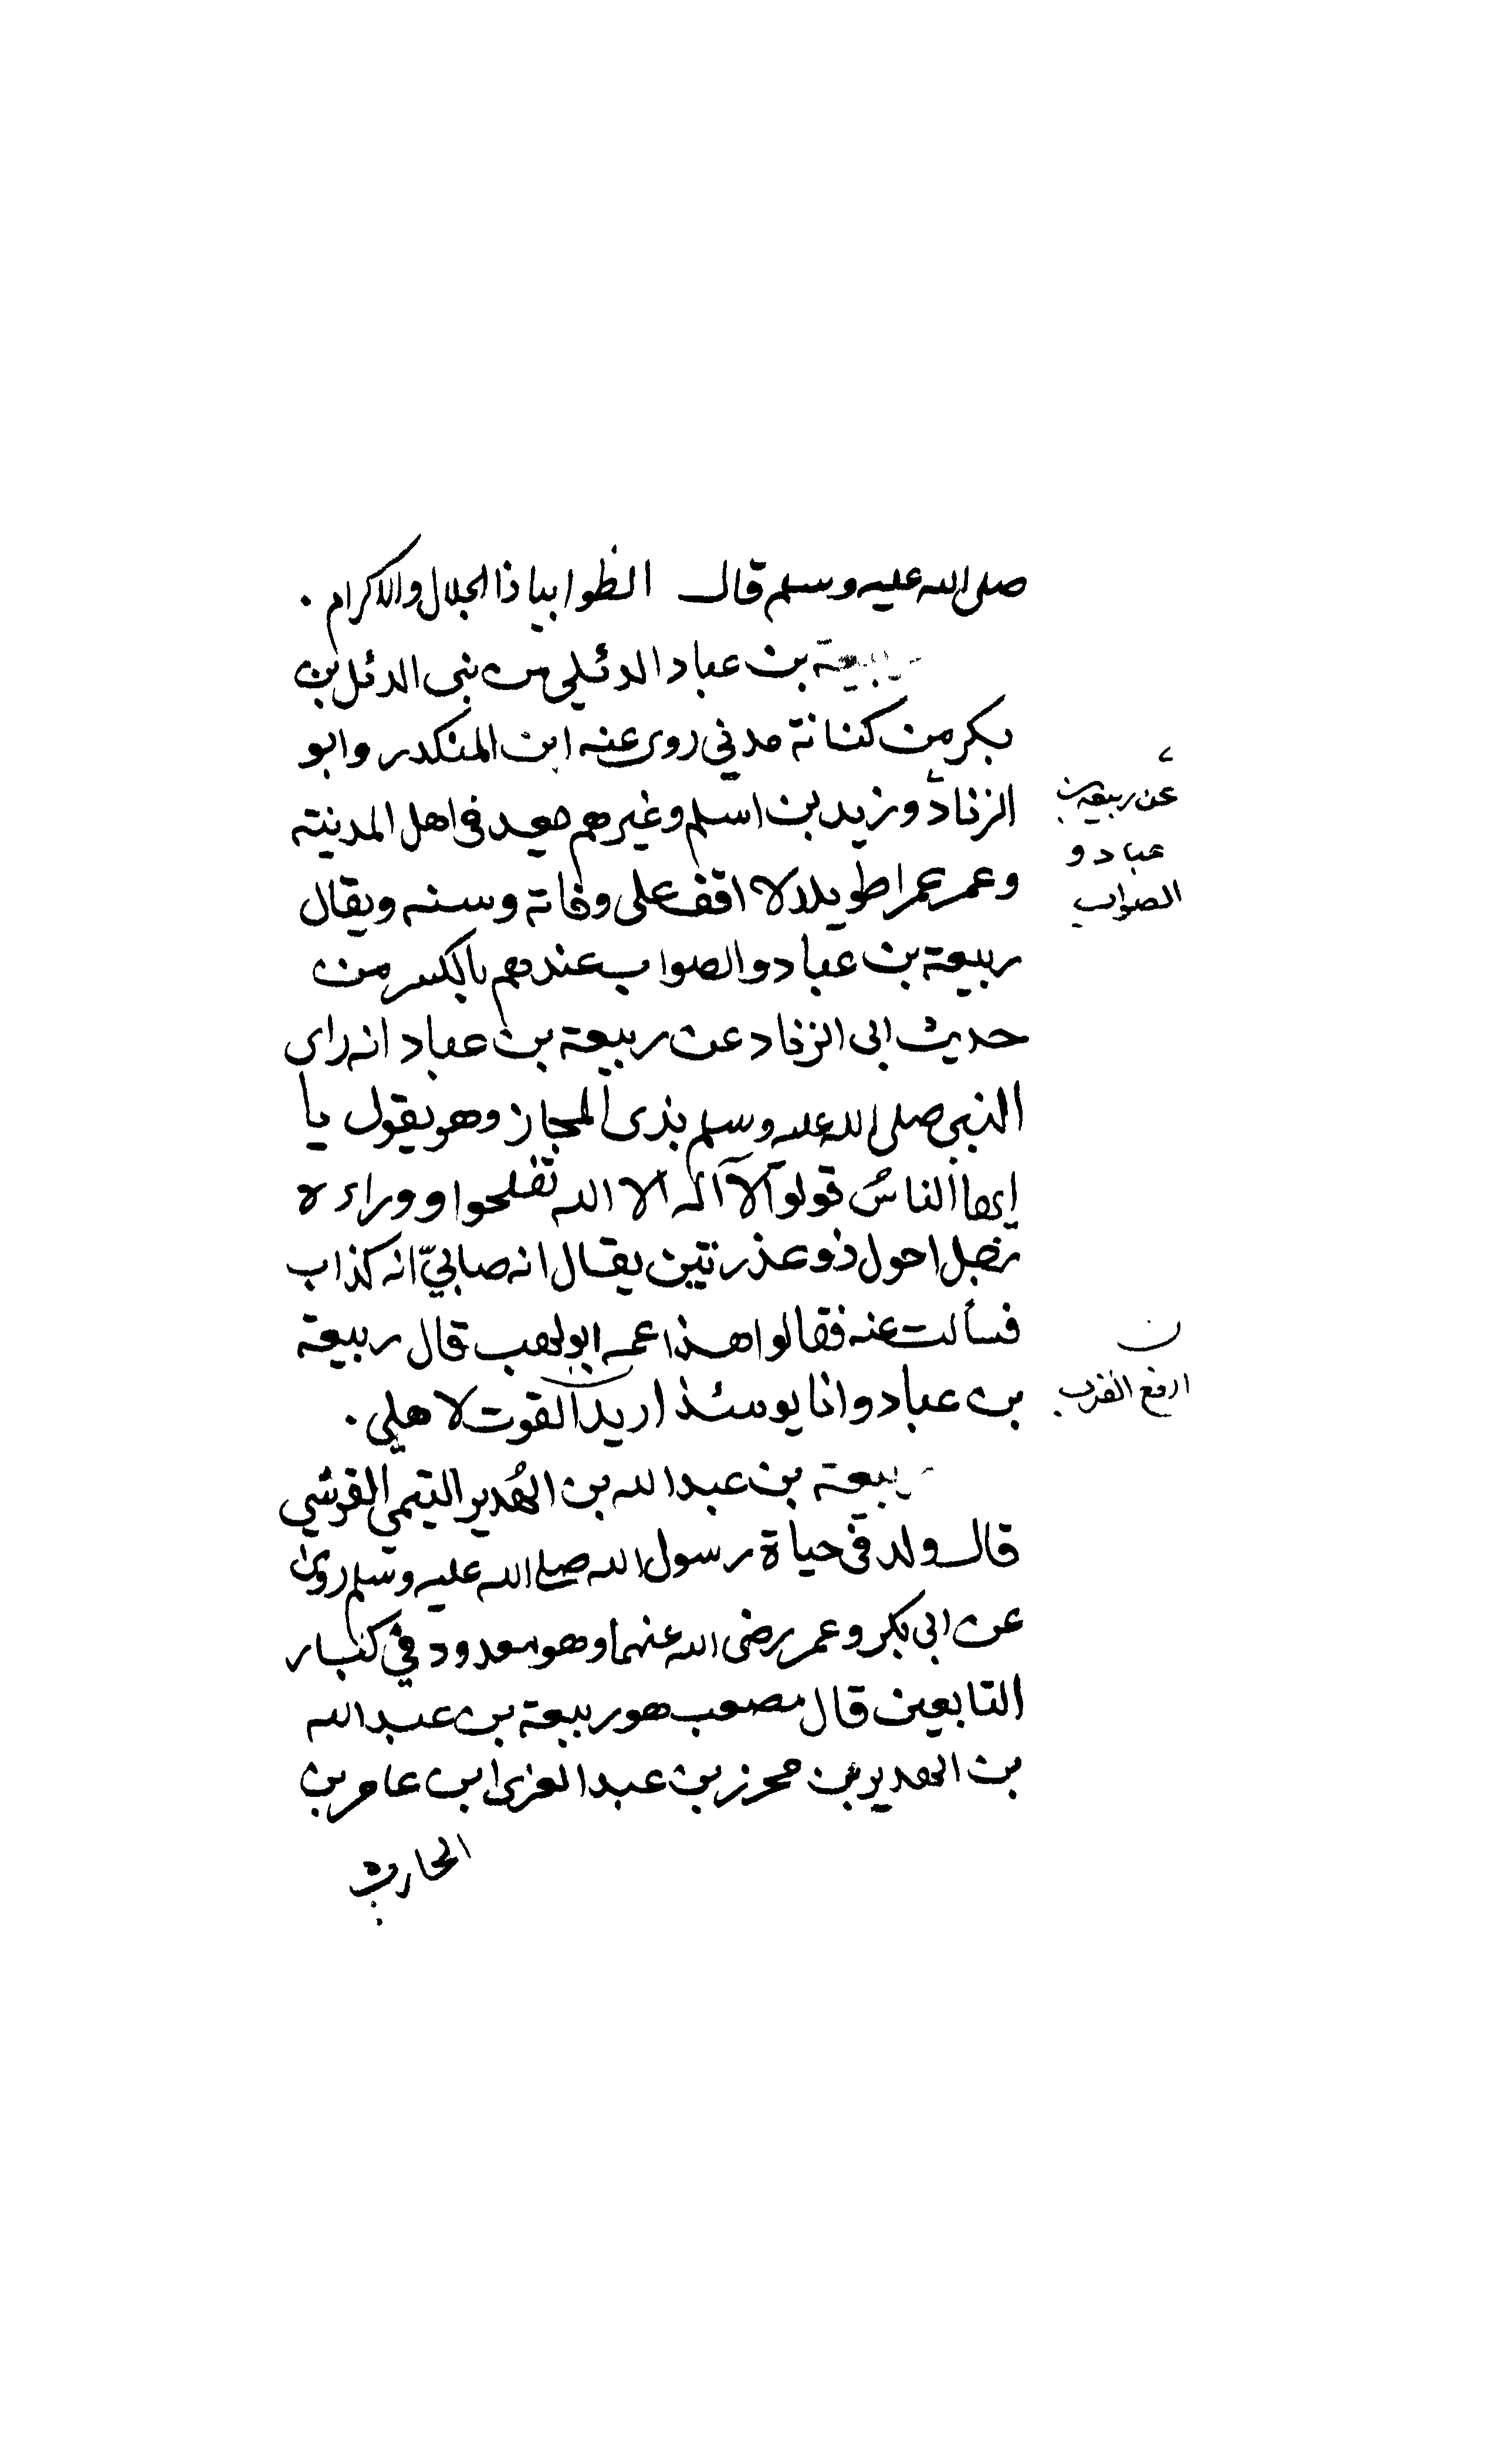 صلى الله عليه وسلم قال الظوا بياذا الجلال والاكرام .
ربيعة بن عباد الدئلي من بنى الدئل بن
بكر من كنانة مدني روى عنه ابن المنكدر وابو
الزناد وزيد بن اسلم وغيرهم يعد فى اهل المدينة
وعمر عمرا طويلا لا اقف على وفاته وسنه ويقال
ربيعة بن عباد والصواب عندهم بالكسر من
حديث ابى الزناد عن ربيعة بن عباد انه راى
النبي صلى الله عليه وسلم بذى المجاز وهو يقول يا
ايها الناسُ قولوا لآ آله الا الله تفلحوا ووراءه
رجل احول ذو عذرتين يقال انه صابيّ انه كذاب
فسألت عنه فقالوا هذا عمه ابو لهب قال ربيعة
بن عباد وانا يومئذ اريد القوت لاهلي .
ربيعة بن عبد الله بن الهُدير التيمي القرشي
قال ولد فى حياة رسول الله صلى الله عليه وسلم روى
عن ابى بكر وعمر رضى الله عنهما وهو معدود في كبار
التابعين قال مصعب هو ربيعة بن عبد الله
بن الهدير بن محرز بن عبد العزى ابن عامر بن
الحارث
عن ربيعة بن
عباد و
الصواب
ن
ارفع